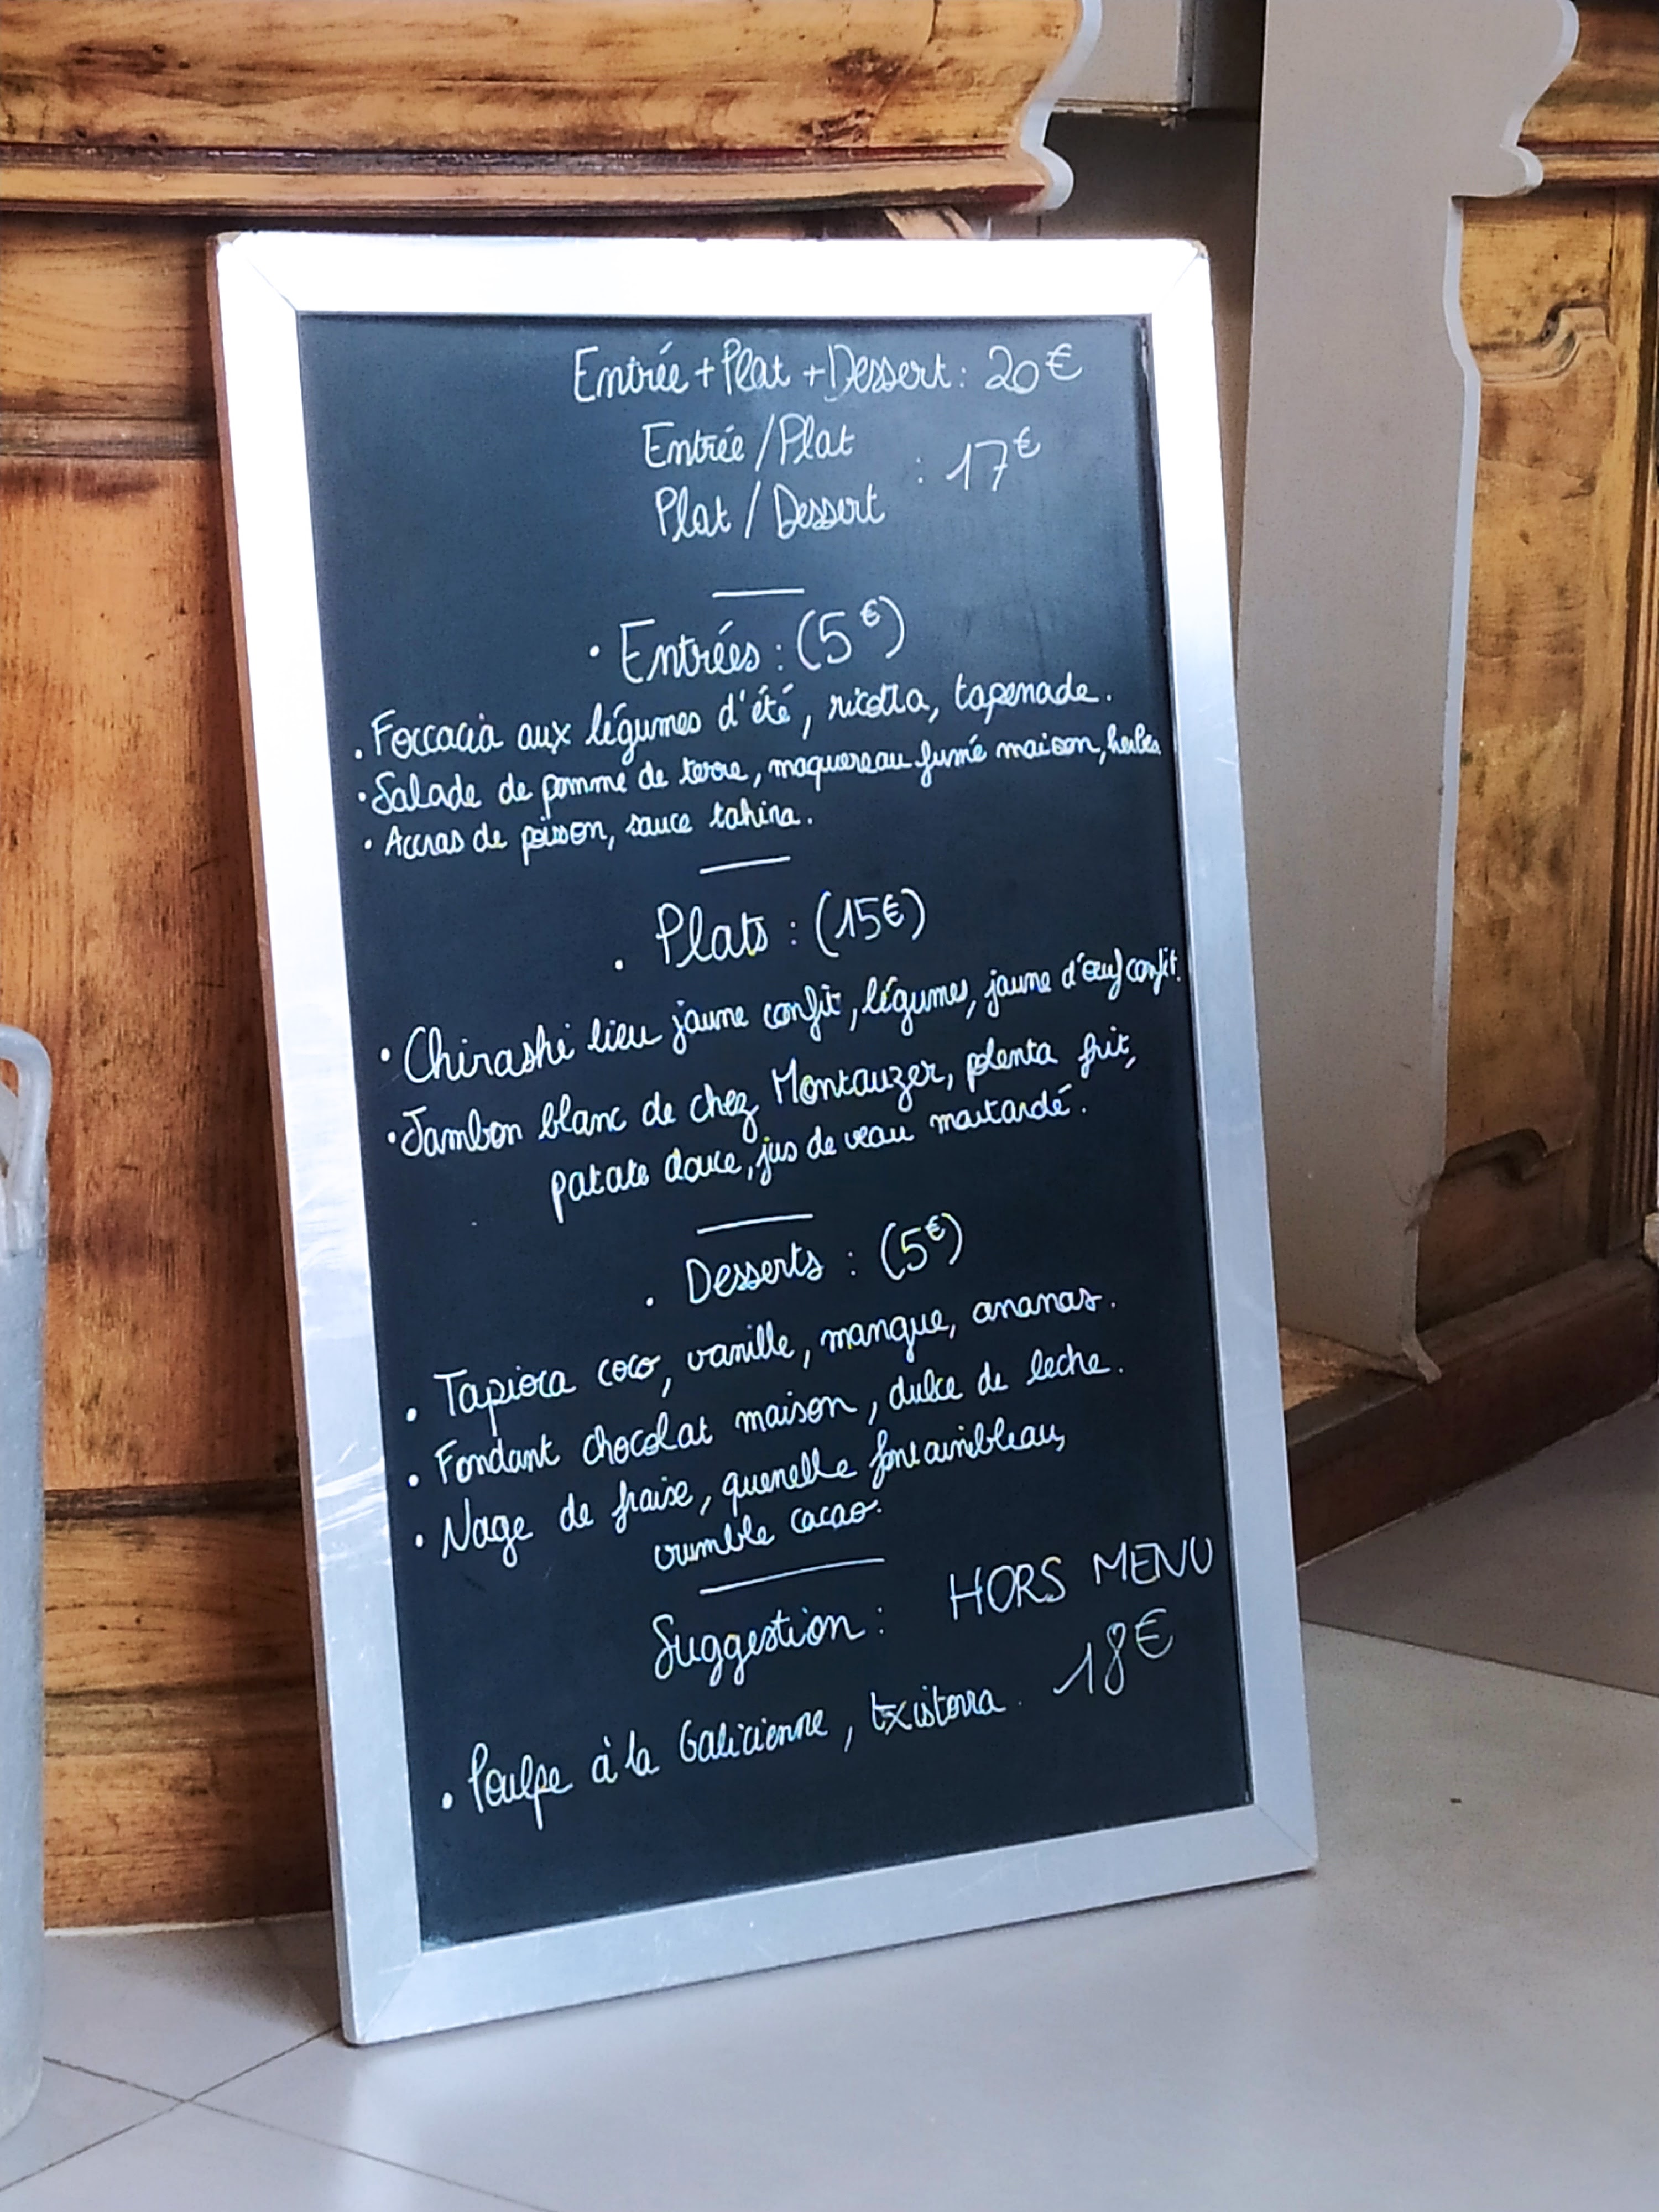 Entrée + Plat + Dessert : 20€
Entrée / Plat
: 17€
Plat / Dessert
• Entrées : (5€)
• Foccacia aux légumes d'été, ricotta, tapenade.
• Salade de pomme de terre, maquereau fumé maison, herbes
• Accras de poisson, sauce tahina.
• Plats : (15€)
• Chirashi lieu jaune confit, légumes, jaune d'œuf confit.
• Jambon blanc de chez Montauzer, polenta frit,
patate douce, jus de veau moutardé.
• Desserts : (5€)
• Tapioca coco, vanille, mangue, ananas.
• Fondant chocolat maison, dulce de leche.
• Nage de fraise, quenelle fontainibleau,
crumble cacao.
Suggestion : HORS MENU
• Poulpe à la Galicienne, txistorra. 18€